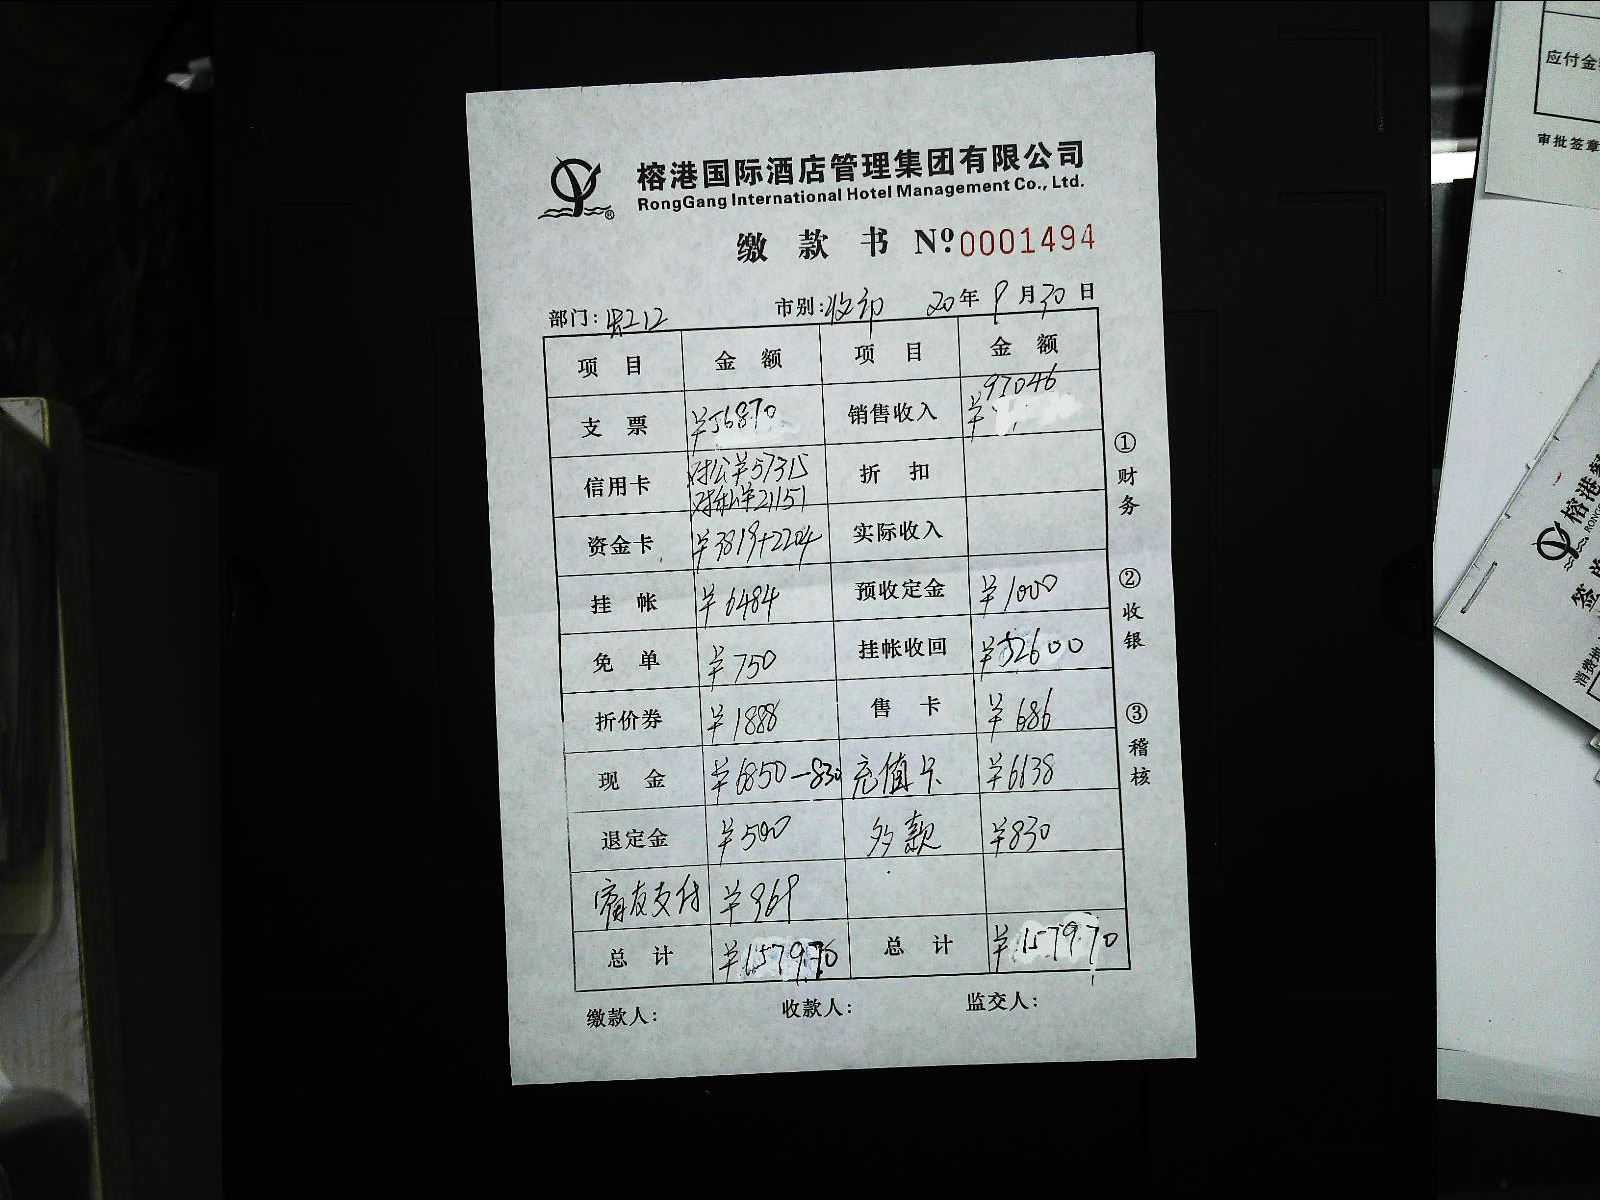 榕港国际酒店管理集团有限公司
RongGang International Hotel Management Co., Ltd.
缴款书 Nº 0001494
部门: 市别:收印 20年9月30日
项目 金额 项目 金额
支票 ¥56870 销售收入 ¥97046
信用卡 对公¥57315 折扣
对私¥21151
资金卡 ¥3819+2204 实际收入
挂帐 ¥6484 预收定金 ¥1000
免单 ¥750 挂帐收回 ¥52600
折价券 ¥1888 售卡 ¥686
现金 ¥6850-830 充值卡 ¥6138
退定金 ¥500 多款 ¥830
支付 ¥969
总计 ¥157970 总计 ¥157970
缴款人: 收款人: 监交人:
①财务
②收银
③稽核
应付金
审批签章
榕港